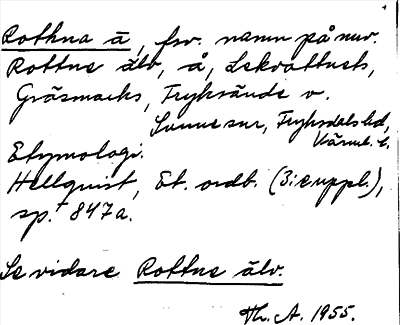 Rothna ā, fsv. namn på nuv.
Rottne älv, å, Lekvattnets,
Gräsmarks, Fryksände o.
Sunne snr, Fryksdals hd,
Värml. l.
Etymologi.
Hellquist, Et. ordb. (3:e uppl.),
sp. 847a.
Se vidare Rottne älv.
Th. A. 1955.